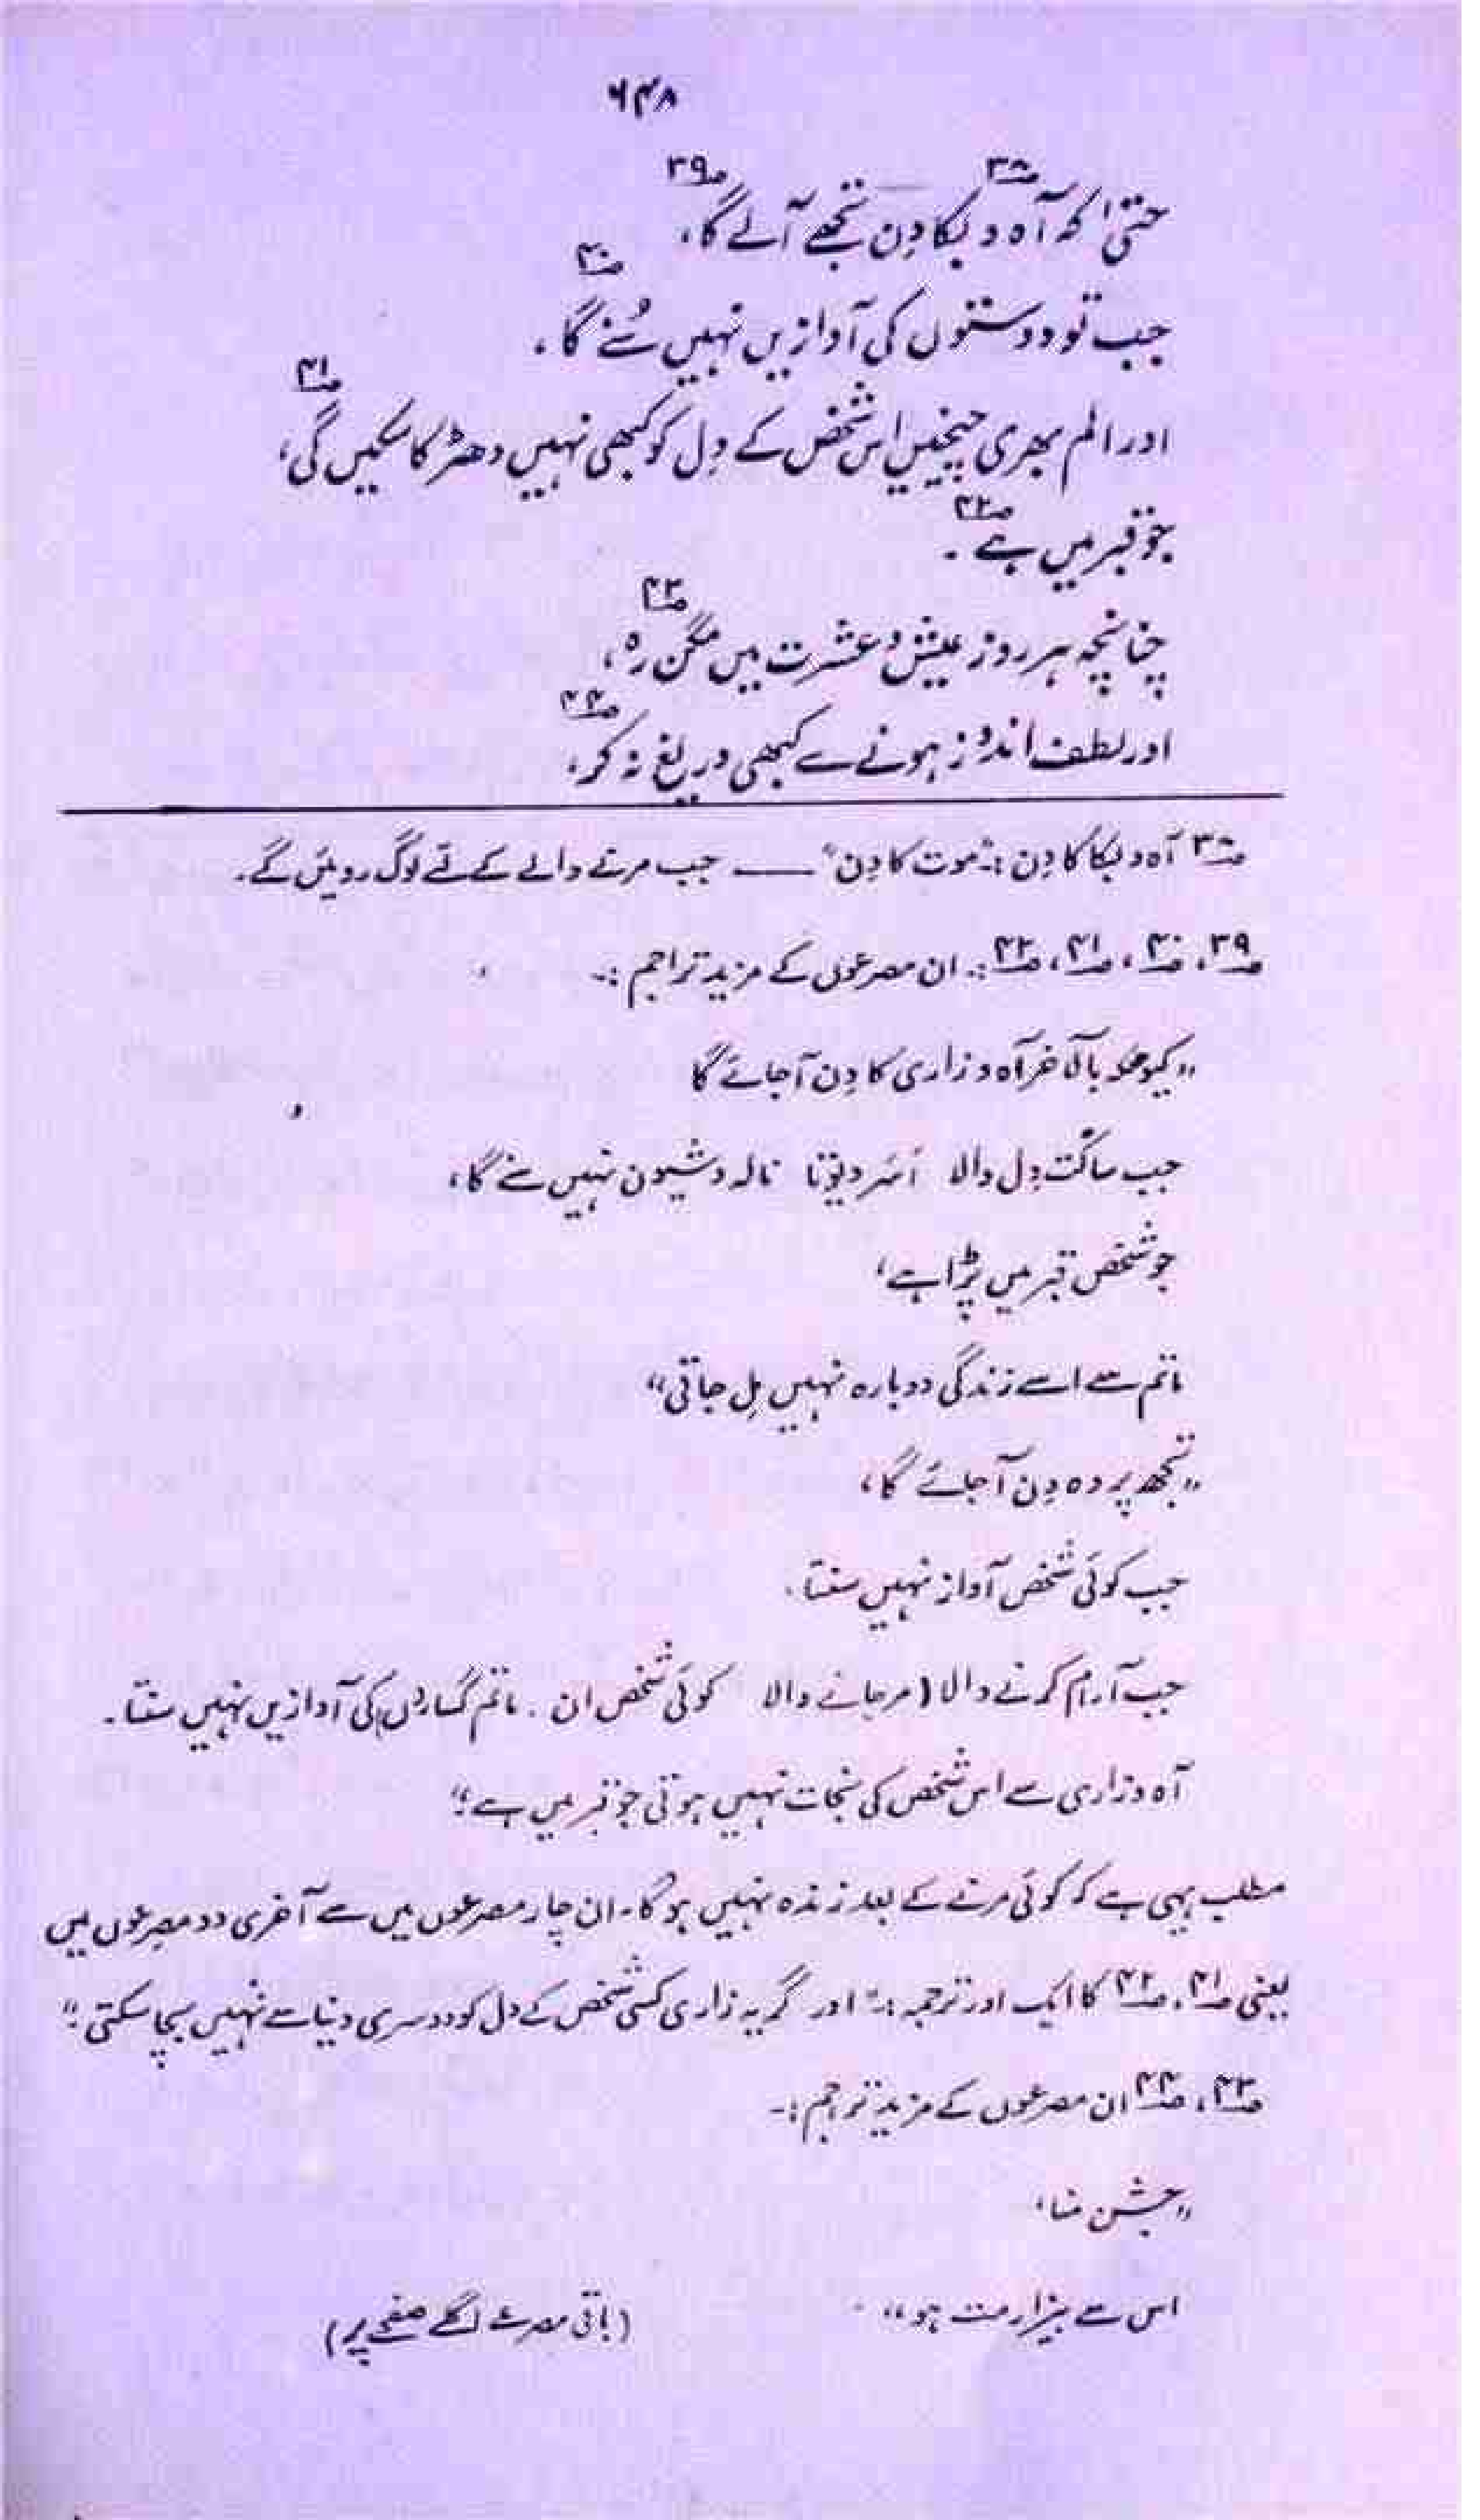 ۶۴۸
حتیٰ کہ آہ و بکا۳۸ دِن تجھے آلے گا،۳۹
جب تو دوستوں کی آوازیں نہیں سُنے گا،۴۰
اور الم بھری چیخیں اس شخص کے دِل کو کبھی نہیں دھڑکا سکیں گی،۴۱
جو قبر میں ہے۔۴۲
چنانچہ ہر روز عیش و عشرت میں مگن رہ،۴۳
اور لطف اندوز ہونے سے کبھی دریغ نہ کر،۴۴
۳۸ آہ و بکا کا دِن :۔ "موت کا دِن" —— جب مرنے والے کے لئے لوگ روئیں گے۔
۳۹، ۴۰، ۴۱، ۴۲ :۔ ان مصرعوں کے مزید تراجم :۔
"کیونکہ بالآخر آہ و زاری کا دِن آجائے گا
جب ساکت دِل والا اُسَر دیوتا نالہ و شیون نہیں سنے گا،
جو شخص قبر میں پڑا ہے،
ماتم سے اسے زندگی دوبارہ نہیں مِل جاتی"
"تجھ پر وہ دِن آجائے گا،
جب کوئی شخص آواز نہیں سنتا۔
جب آرام کرنے والا (مرجانے والا کوئی شخص ان ۔ ماتم گساروں) کی آوازیں نہیں سنتا۔
آہ و زاری سے اس شخص کی نجات نہیں ہوتی جو قبر میں ہے؛"
مطلب یہی ہے کہ کوئی مرنے کے بعد زندہ نہیں ہوگا۔ ان چار مصرعوں میں سے آخری دو مصرعوں میں
یعنی ۴۱، ۴۲ کا ایک اور ترجمہ :۔ "اور گریہ زاری کسی شخص کے دل کو دوسری دنیا سے نہیں بچا سکتی؛"
۴۳، ۴۴ ان مصرعوں کے مزید تراجم :۔
"جشن منا،
اس سے بیزار مت ہو" (باقی مصرعے اگلے صفحے پر)